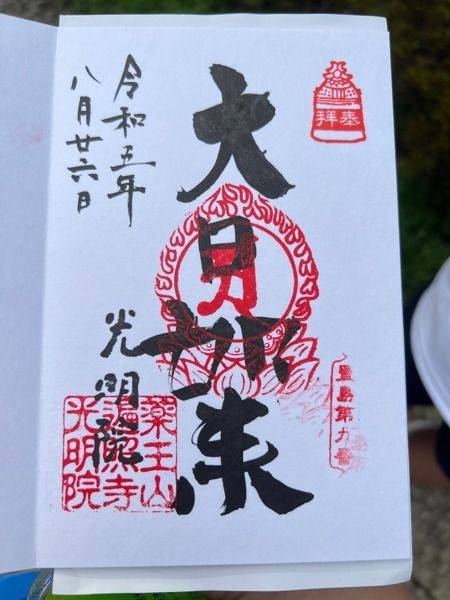 奉拝
豊島第九番
大日如来
令和五年
八月廿六日
光明院
薬王山
遍照寺
光明院